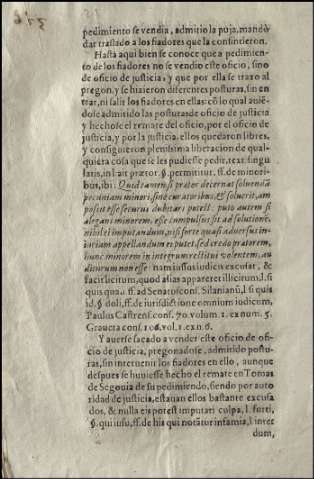 pedimiento se vendia, admitio la puja, mandò
dar traslado a los fiadores que la consintieron.
Hasta aqui bien se conoce que a pedimien-
to de los fiadores no se vendio este oficio, sino
de oficio de justicia, y que por ella se traxo al
pregon, y se hizieron diferentes posturas, sin en
trar, ni salir los fiadores en ellas: cõ lo qual auiẽ-
dose admitido las posturas de oficio de justicia
y hechose el remate del oficio, por el oficio de
justicia, y por la justicia, ellos quedaron libres,
y consiguieron plenissima liberacion de qual-
quiera cosa que se les pudiesse pedir, text. singu
laris, in l. ait prætor. §. permittitur. ff. de minori-
bus, ibi: Quid tamen si prætor decernat soluendã
pecuniam minori, sine curatoribus, & soluerit, an
possit esse securus dubitari potest. puto autem si
alegans minorem, esse compulsus sit ad solutionem,
nihil ei imputandum, nisi forte quasi aduersus in-
iuriam appellandum ei putet. sed credo prætorem,
hunc minorem in integrum restitui volentem, au
diturum non esse: nam iussus iudicis excusat, &
facit licitum, quod alias appareret illicitum, l. si
quis qua. ff. ad Senatusconf. Silanianũ, l. si quis
id. §. doli, ff. de iurisdictione omnium iudicum,
Paulus Castrens. cons. 70. volum. 1. ex num. 5.
Graueta cons. 106. vol. 1. ex n. 6.
Y auerse sacado a vender este oficio de ofi-
cio de justicia, pregonadose, admitido postu-
ras, sin interuenir los fiadores en ello, aunque
despues se huuiesse hecho el remate en Tomas
de Segouia de su pedimiendo, siendo por auto
ridad de justicia, estauan ellos bastante escusa
dos, & nulla eis potest imputari culpa, l. furti,
§. qui iussu, ff. de his qui notãtur infamia, l. inter
dum,